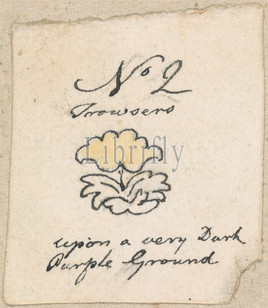 No 2
Trowsers
Librifly
upon a very Dark
Purple Ground